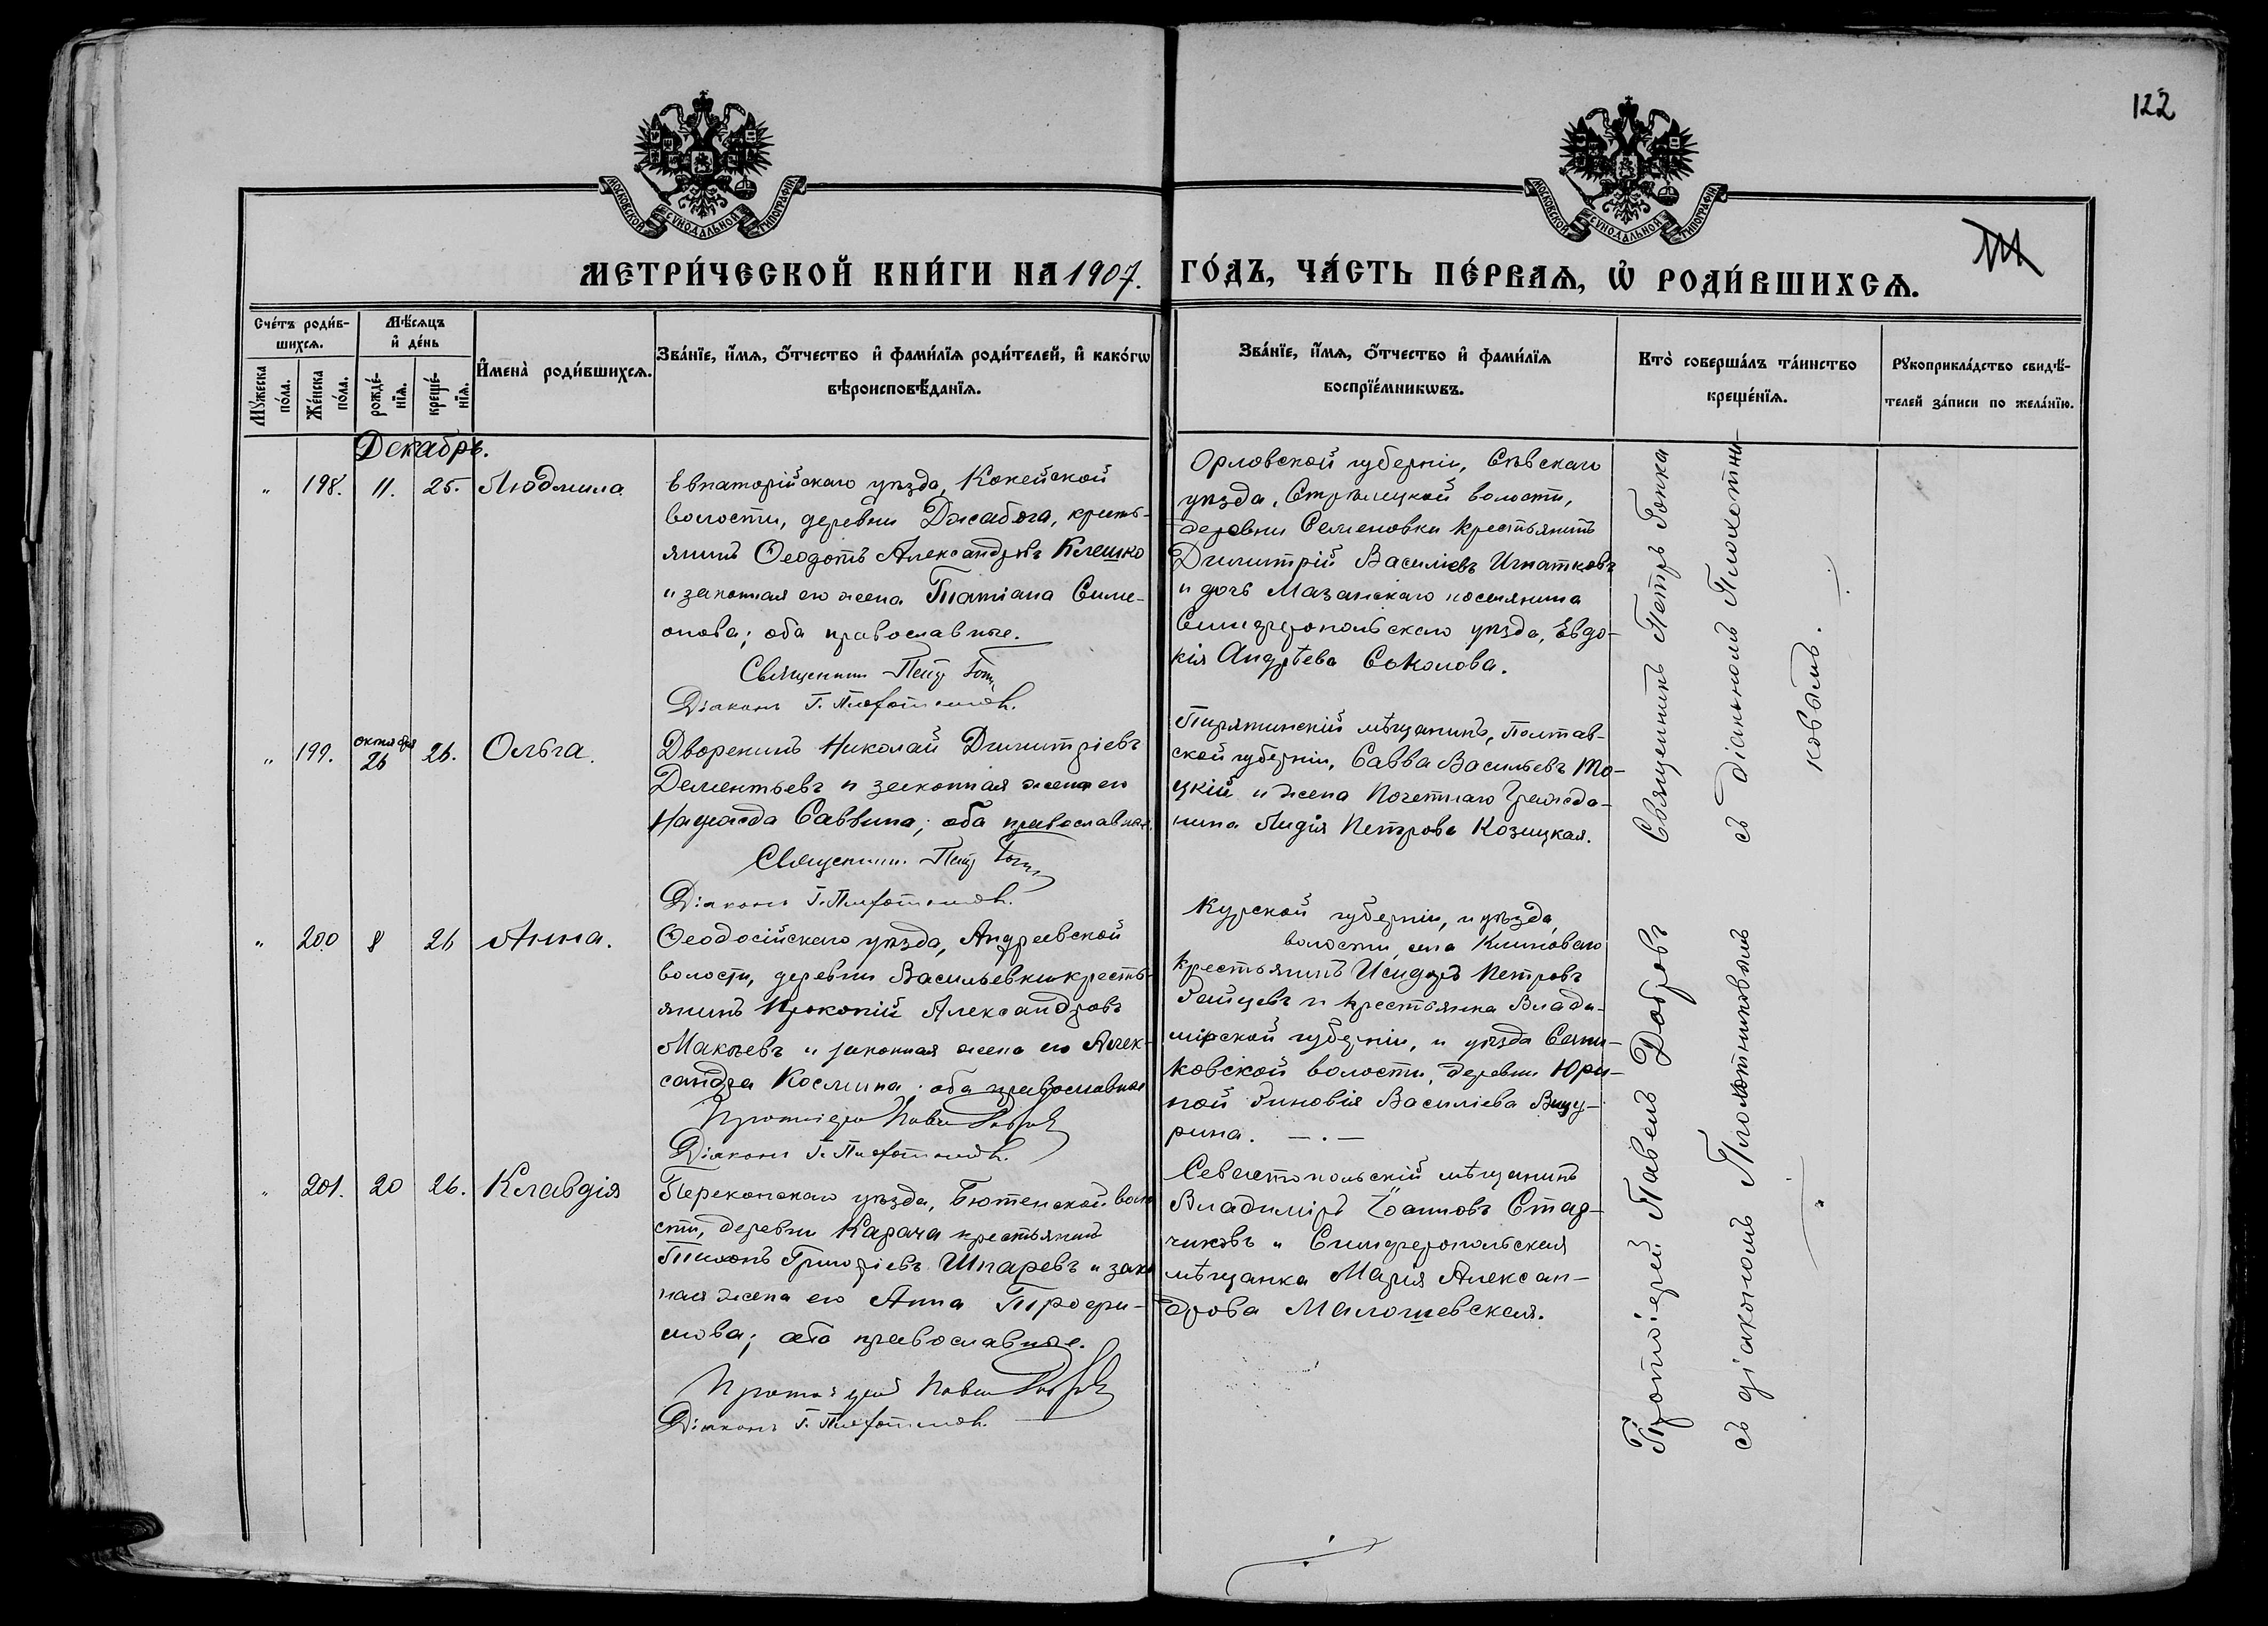 122
МОСКОВСКОЙ СѴНОДАЛЬНОЙ ТИПОГРАФІИ
МОСКОВСКОЙ СѴНОДАЛЬНОЙ ТИПОГРАФІИ
МЕТРИ́ЧЕСКОЙ КНИ́ГИ НА 1907. ГО́ДЪ, ЧА́СТЬ ПЕ́РВАѦ, Ѡ҆ РОДИ́ВШИХСѦ.
Сче́тъ роди́в-
шихсѧ.
Мѣ́сѧцъ
и҆ де́нь
Му́жеска
по́ла.
Же́нска
по́ла.
рожде́-
нїѧ.
креще́-
нїѧ.
И҆мена̀ роди́вшихсѧ.
Зва́нїе, и҆́мѧ, ѻ҆́тчество и҆ фами́лїѧ роди́телей, и҆ како́гѡ
вѣроисповѣ́данїѧ.
Зва́нїе, и҆́мѧ, ѻ҆́тчество и҆ фами́лїѧ
воспрїе́мникѡвъ.
Кто̀ соверша́лъ та́инство
креще́нїѧ.
Рꙋкоприкла́дство свидѣ́-
телей за́писи по жела́нїю.
Декабрь.
" 198. 11. 25. Людмила
Евпаторійскаго уѣзда, Кокейской
волости, деревни Джабога, кресть-
янинъ Ѳеодотъ Александровъ Клешко
и законная его жена Татіана Симе-
онова; оба православные.
Священникъ Петр Гопка
Діаконъ Г. Плохотников.
Орловской губерніи, Сѣвскаго
уѣзда, Стрѣлецкой волости,
деревни Семеновки крестьянинъ
Димитрій Василіевъ Игнатковъ
и дочь Мазанскаго поселянина
Симферопольскаго уѣзда, Евдо-
кія Андрѣева Соколова.
Священникъ Петръ Гопка
съ діакономъ Плохотни-
ковымъ.
" 199. октября 26 26. Ольга.
Дворянинъ Николай Димитріевъ
Дементьевъ и законная жена его
Надежда Саввина; оба православные.
Священник Петр Гопка
Діаконъ Г. Плохотников.
Пирятинскій мѣщанинъ, Полтав-
ской губерніи, Савва Васильевъ То-
цкій и жена Почетнаго Гражда-
нина Лидія Петрова Козицкая.
" 200 8 26 Анна.
Ѳеодосійскаго уѣзда, Андреевской
волости, деревни Васильевки кресть-
янинъ Прокопій Александровъ
Макѣевъ и законная жена его Алек-
сандра Космина; оба православные
Протоіерей Павел Добров
Діаконъ Г. Плохотников.
Курской губерніи, и уѣзда,
волости, села Клиноваго
крестьянинъ Исидоръ Петровъ
Зайцевъ и крестьянка Влади-
мірской губерніи, и уѣзда
ковской волости, деревни Юри-
ной Зиновія Василіева
рина. — . —
Протоіерей Павелъ Добровъ
съ діакономъ Плохотниковымъ
" 201. 20 26. Клавдія
Перекопскаго уѣзда, Бютенской воло
сти, деревни Карача крестьянинъ
Тихонъ Григоріевъ Шпаревъ и закон
ная жена его Анна Трофи-
мова; оба православные.
Протоіерей Павел Добров
Діаконъ Г. Плохотников.
Севастопольскій мѣщанинъ
Владиміръ Іоанновъ Стад-
никовъ и Симферопольская
мѣщанка Марія Алексан-
дрова Малошевская.